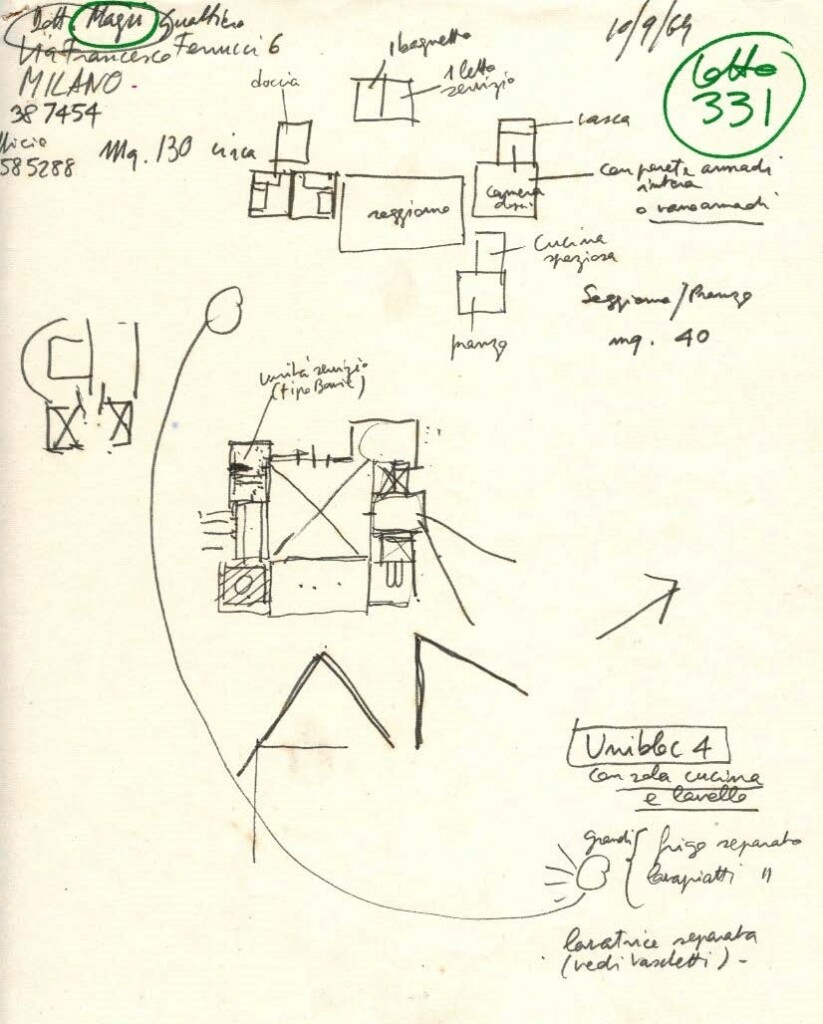 Dott. Magri Gualtiero
Via Francesco Ferrucci 6
MILANO.
387454
Ufficio
585288
Mq. 130 circa
10/9/69
lotto
331
1 bagnetto
1 letto
servizio
doccia
vasca
con parete armadi
intera
o vano armadi
camera
doppi
soggiorno
cucina
spaziosa
pranzo
Soggiorno/Pranzo
mq. 40
unità servizio
(tipo
Unibloc 4
con sola cucina
e lavello
grandi
frigo separato
lavapiatti "
lavatrice separata
(vedi